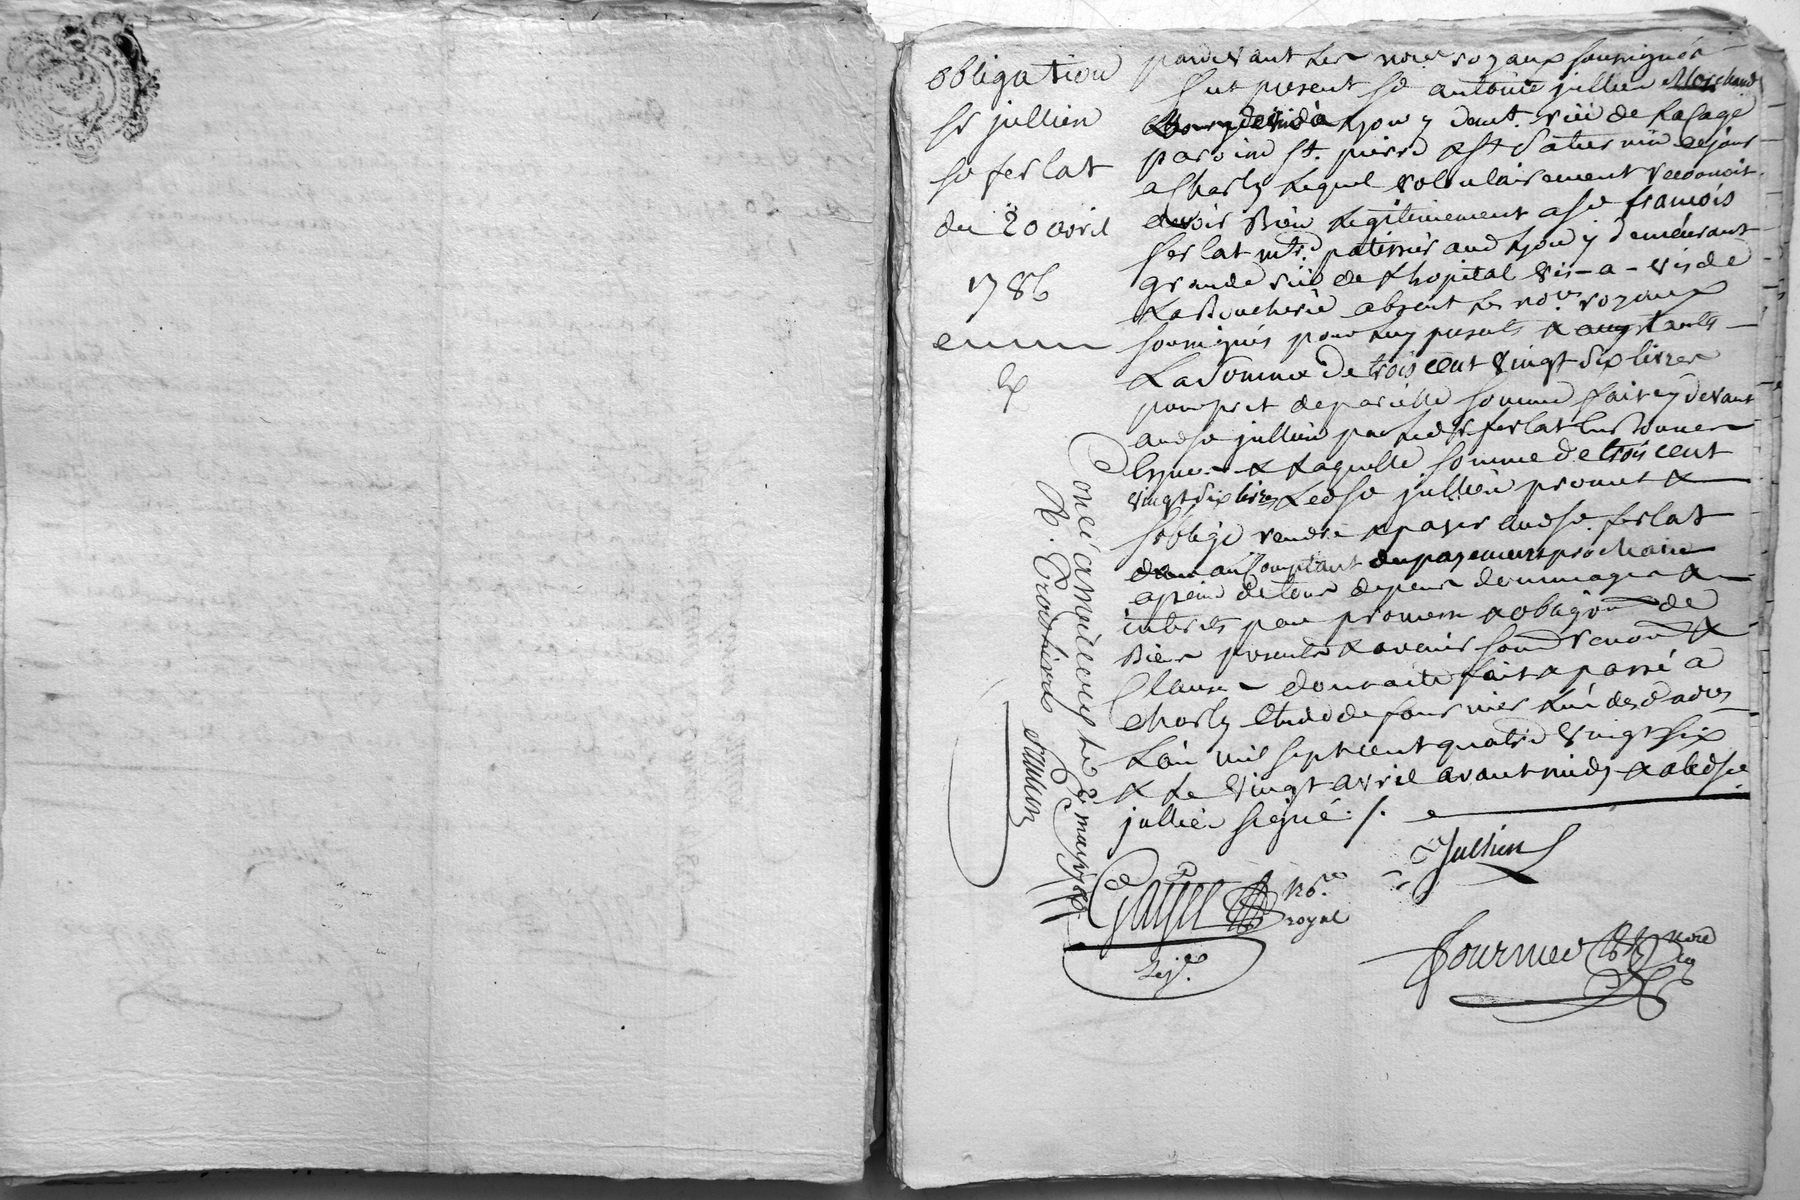 obligation
sr jullien
sr ferlat
du 20 avril
1786
pardevant les no.res royaux soussignés
fut present sr antoine jullien Marchand
a Lyon y demt. rüe de La Cage
paroisse St. pierre & St Saturnin de jour
a Charly Lequel volontairement reconnoit
devoir Bien Legitimement a sr françois
ferlat md. patissier aud Lyon y demeurant
grande rüe de L'hopital vis-a-vis de
La Boucherie absent Les no.res royaux
soussignés pour luy presents & acceptants
La Somme de trois cent vingt six livres
pour pret de pareille somme fait cy devant
aud sr jullien par led sr ferlat
& Laquelle somme de trois cent
vingt six livres Led sr jullien promet &
s'oblige rendre & payer aud sr. ferlat
payement prochain
a peine de tous depens dommages &
interets par promesse & obligon de
Biens presents & avenir soum renon &
Clauses dont acte fait & passé a
Charly Etude de fournier L'un desd no.res
L'an mil sept cent quatre vingt six
& Le vingt avril avant midy & a led sr
jullien signé ./.
Jullien
Gayet no.re
royal
Fournier no.re
Con.lé a Millery Le 2 may 1786
R. Trois livres